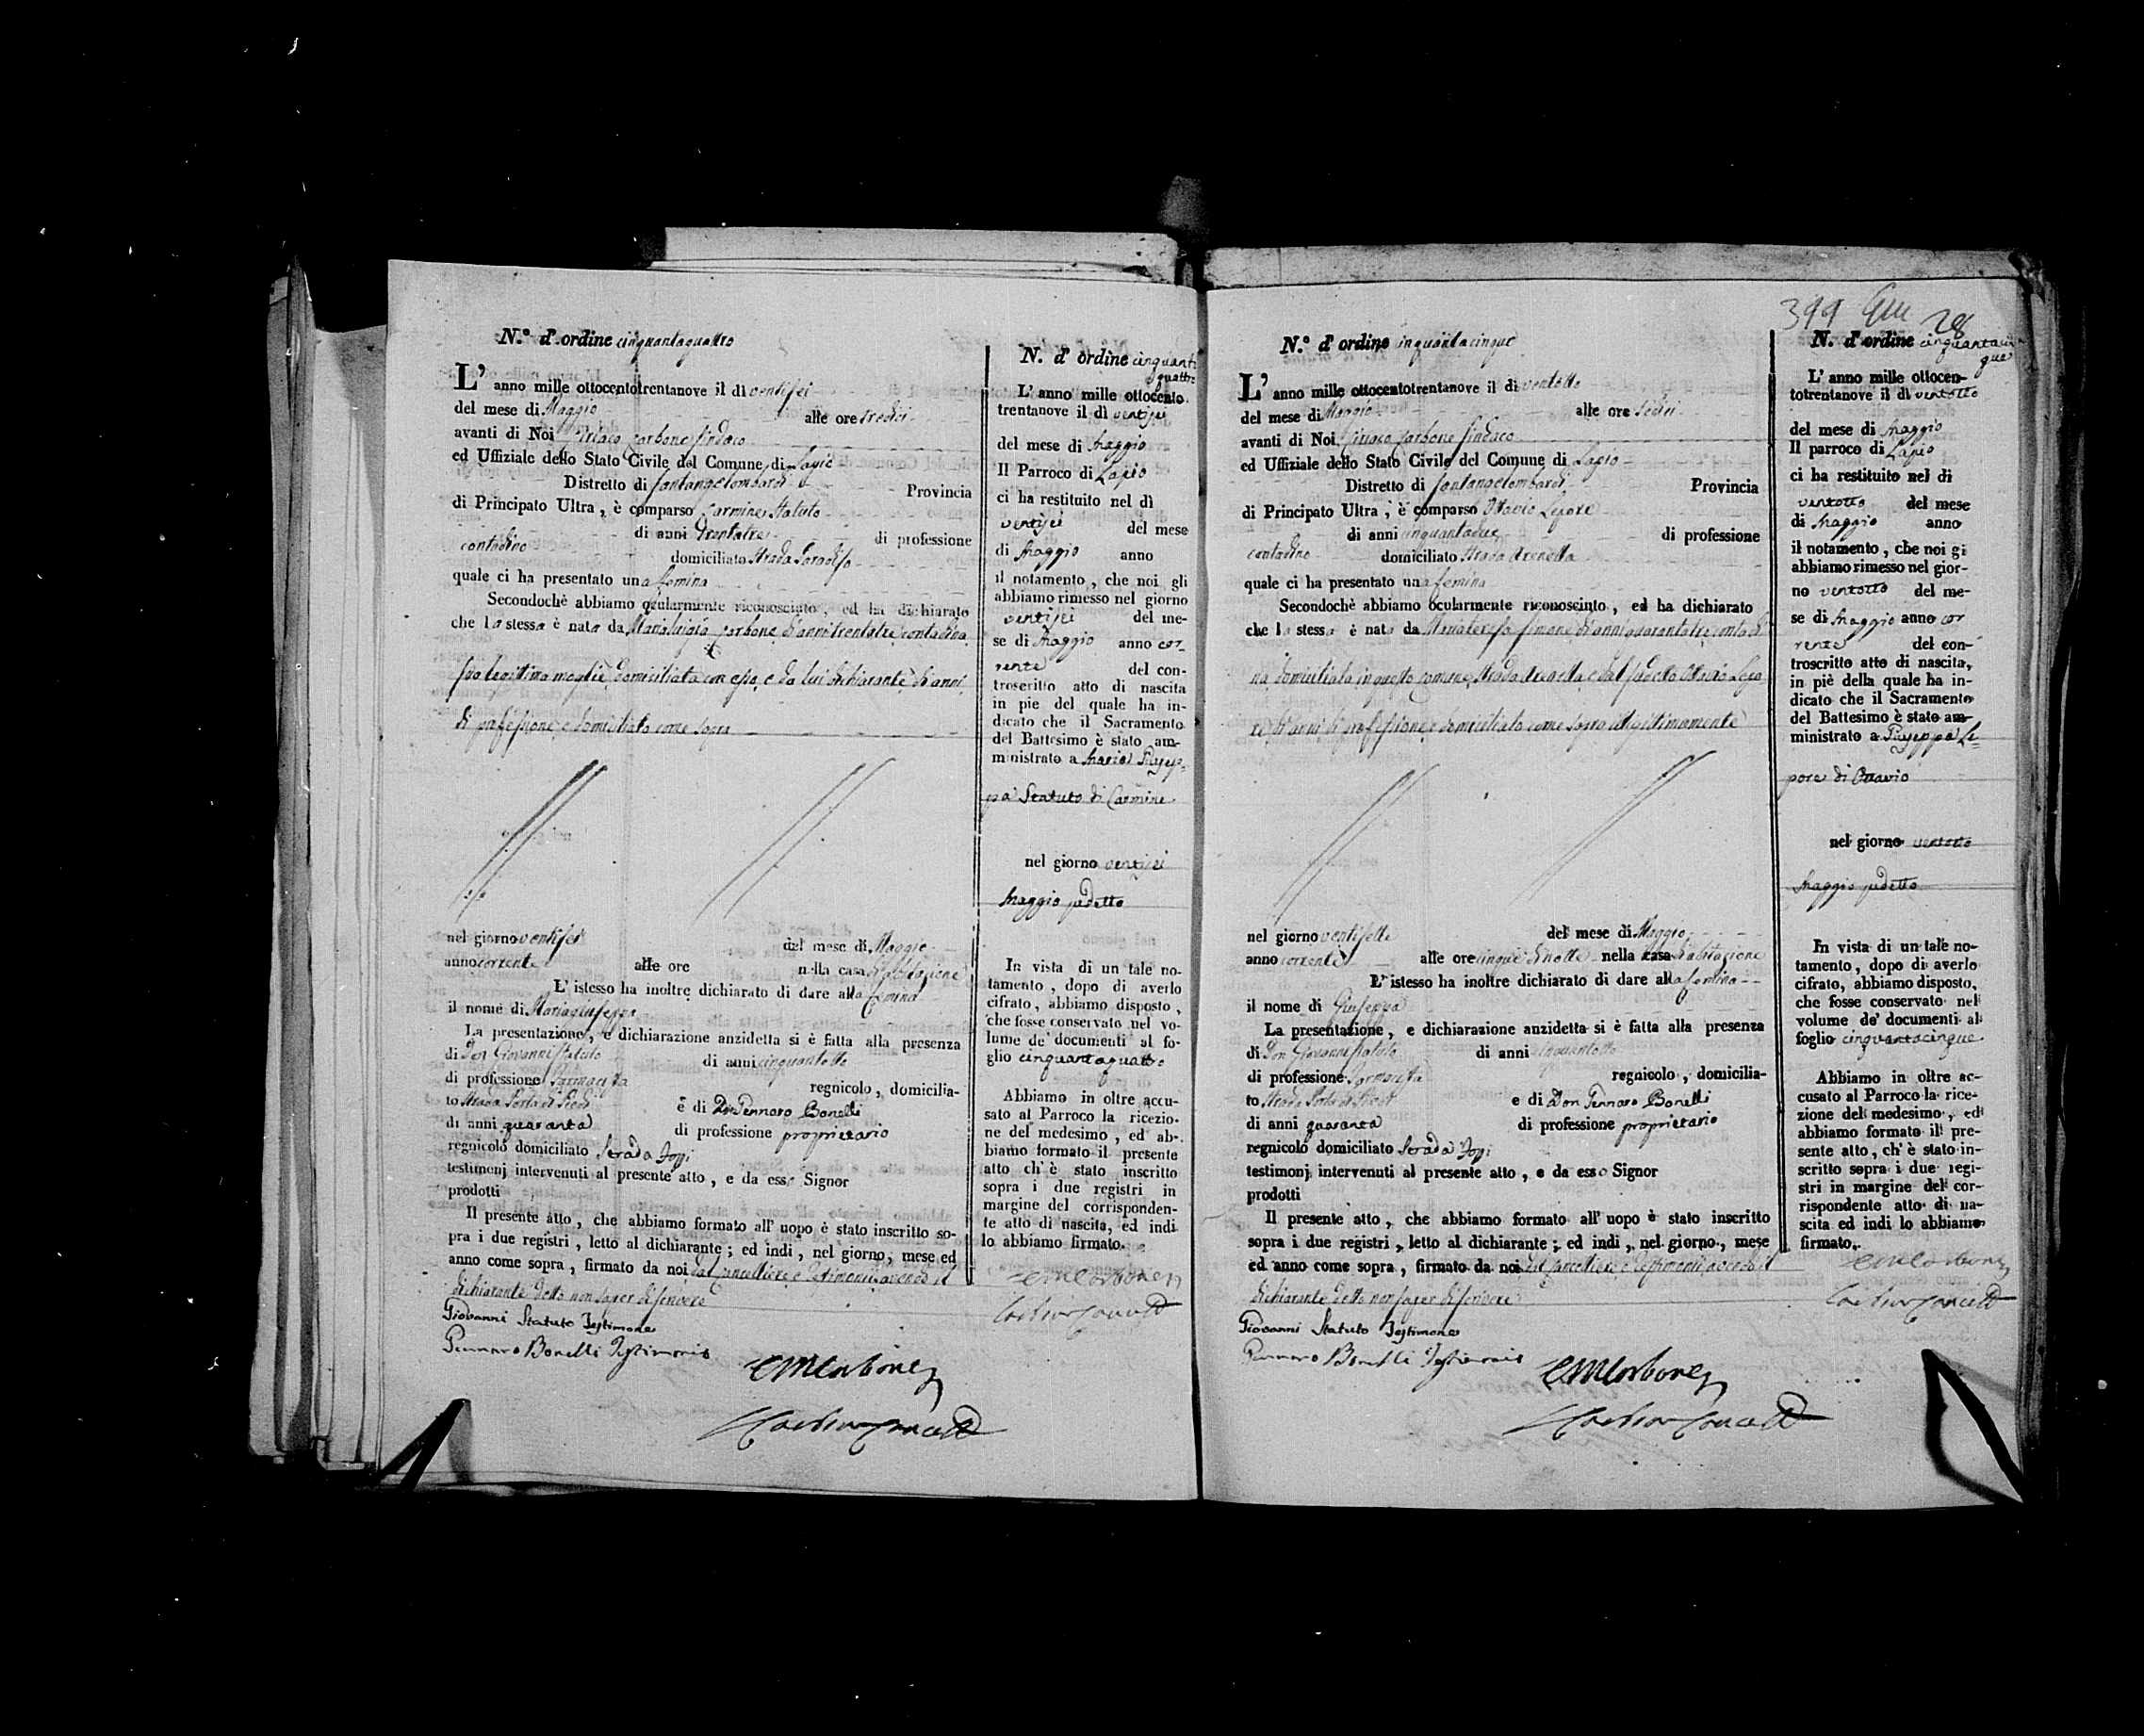 N.° d'ordine cinquantaquattro
L'anno mille ottocentotrentanove il dì ventisei
del mese di Maggio alle ore tredici
avanti di Noi Ciriaco Carbone Sindaco
ed Uffiziale dello Stato Civile del Comune di Lapio
Distretto di Santangelombardi Provincia
di Principato Ultra, è comparso Carmine Statuto
di anni trentatre di professione
contadino domiciliato Strada Paradiso
quale ci ha presentato una femina
Secondochè abbiamo ocularmente riconosciuto, ed ha dichiarato
che la stessa è nata da Marialuigia Carbone d'anni trentatre contadina
sua legittima moglie domiciliata con esso, e da lui dichiarante di anni,
di professione, e domiciliato come sopra
nel giorno ventisei del mese di Maggio
anno corrente alle ore nella casa d'abitazione
L'istesso ha inoltre dichiarato di dare alla femina
il nome di Mariagiuseppa
La presentazione, e dichiarazione anzidetta si è fatta alla presenza
di Don Giovanni Statuto di anni cinquantotto
di professione Farmacista regnicolo, domicilia-
to Strada Porta di Piedi e di Don Gennaro Bonelli
di anni quaranta di professione proprietario
regnicolo domiciliato Strada
testimonj intervenuti al presente atto, e da esso Signor
prodotti
Il presente atto, che abbiamo formato all'uopo è stato inscritto so-
pra i due registri, letto al dichiarante; ed indi, nel giorno, mese ed
anno come sopra, firmato da noi dal Cancelliere e Testimoni avendo il
dichiarante detto non saper di scrivere
Giovanni Statuto Testimone
Gennaro Bonelli Testimonio
N. d'ordine cinquanta
quattro
L'anno mille ottocento
trentanove il dì ventisei
del mese di Maggio
Il Parroco di Lapio
ci ha restituito nel dì
ventisei del mese
di Maggio anno
il notamento, che noi gli
abbiamo rimesso nel giorno
ventisei del me-
se di Maggio anno cor-
rente del con-
troscritto atto di nascita
in pie del quale ha in-
dicato che il Sacramento
del Battesimo è stato am-
ministrato a Maria Giusep-
pa Statuto di Carmine
nel giorno ventisei
Maggio sudetto
In vista di un tale no-
tamento, dopo di averlo
cifrato, abbiamo disposto,
che fosse conservato nel vo-
lume de' documenti al fo-
glio cinquantaquattro
Abbiamo in oltre accu-
sato al Parroco la ricezio-
ne del medesimo, ed ab-
biamo formato il presente
atto ch'è stato inscritto
sopra i due registri in
margine del corrisponden-
te atto di nascita, ed indi
lo abbiamo firmato.
399
28
N.° d'ordine cinquantacinque
L'anno mille ottocentotrentanove il dì ventotto
del mese di Maggio alle ore sedici
avanti di Noi Ciriaco Carbone Sindaco
ed Uffiziale dello Stato Civile del Comune di Lapio
Distretto di Santangelombardi Provincia
di Principato Ultra, è comparso Ottavio Lepore
di anni cinquantadue di professione
contadino domiciliato Strada Arenella
quale ci ha presentato una femina
Secondochè abbiamo ocularmente riconosciuto, ed ha dichiarato
che la stessa è nata da Mariateresa Simone d'anni quarantatre contadi
na domiciliata in questo Comune Strada Arenella e dal sudetto Ottavio Lepo
re di anni di professione e domiciliato come sopra illegitimamente
nel giorno ventisette del mese di Maggio
anno corrente alle ore cinque di notte nella casa d'abitazione
L'istesso ha inoltre dichiarato di dare alla femina
il nome di Giuseppa
La presentazione, e dichiarazione anzidetta si è fatta alla presenza
di Don Giovanni Statuto di anni cinquantotto
di professione Farmacista regnicolo, domicilia-
to Strada Porta di Piedi e di Don Gennaro Bonelli
di anni quaranta di professione proprietario
regnicolo domiciliato Strada
testimonj intervenuti al presente atto, e da esso Signor
prodotti
Il presente atto, che abbiamo formato all'uopo è stato inscritto
sopra i due registri, letto al dichiarante; ed indi, nel giorno, mese
ed anno come sopra, firmato da noi dal Cancelliere e Testimoni avendo il
dichiarante detto non saper di scrivere
Giovanni Statuto Testimone
Gennaro Bonelli Testimonio
N. d'ordine cinquantacin
que
L'anno mille ottocen-
totrentanove il dì ventotto
del mese di Maggio
Il parroco di Lapio
ci ha restituito nel di
ventotto del mese
di Maggio anno
il notamento, che noi gi
abbiamo rimesso nel gior-
no ventotto del me-
se di Maggio anno cor
rente del con-
troscritto atto di nascita,
in piè della quale ha in-
dicato che il Sacramento
del Battesimo è stato am-
ministrato a Giuseppa Le-
pore di Ottavio
nel giorno ventotto
Maggio sudetto
In vista di un tale no-
tamento, dopo di averlo
cifrato, abbiamo disposto,
che fosse conservato nel
volume de' documenti al
foglio cinquantacinque
Abbiamo in oltre ac-
cusato al Parroco la rice-
zione del medesimo, ed
abbiamo formato il pre-
sente atto, ch'è stato in-
scritto sopra i due regi-
stri in margine del cor-
rispondente atto di na-
scita ed indi lo abbiamo
firmato.